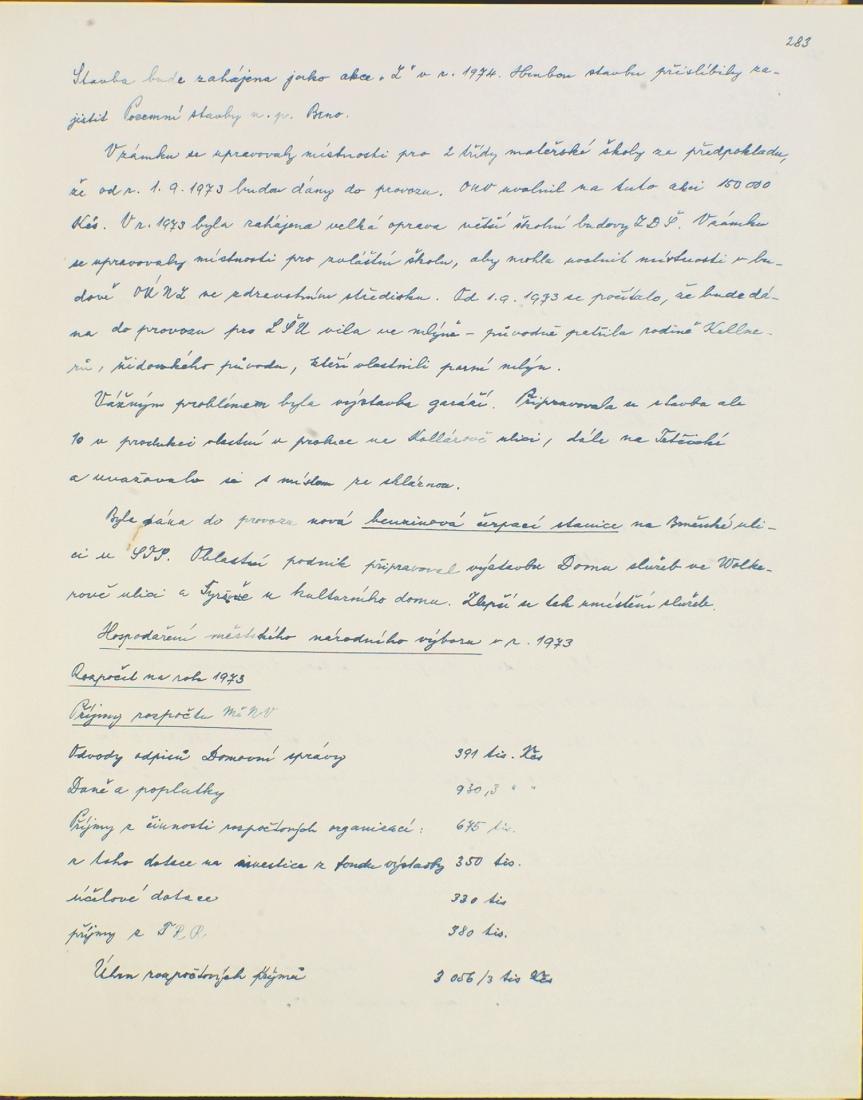 283
Stavba bude zahájena jako akce „Z" v r. 1974. Hrubou stavbu přislíbily za-
jistit Pozemní stavby n. p. Brno.
V zámku se upravovaly místnosti pro 2 třídy mateřské školy za předpokladu,
že od r. 1.9.1973 budou dány do provozu. ONV uvolnil na tuto akci 150 000
Kčs. V r. 1973 byla zahájena velká oprava větší školní budovy ZDŠ. V zámku
se upravovaly místnosti pro zvláštní školu, aby mohla uvolnit místnosti v bu-
dově OÚNZ ve zdravotním středisku. Od 1.9.1973 se počítalo, že bude dá-
na do provozu pro LŠU vila ve mlýně - původně patřila rodině Kellne-
rů, židovského původu, kteří vlastnili parní mlýn.
Vážným problémem byla výstavba garáží. Připravovala se stavba ale
10 v produkci vlastní v proluce ve Kollárově ulici, dále na Tetčické
a uvažovalo se s místem ze sklárnou.
Byla dána do provozu nová benzinová čerpací stanice na Brněnské uli-
ci u STS. Oblastní podnik připravoval výstavbu Domu služeb ve Wolke-
rově ulici a Tyršově u kulturního domu. Zlepší se tak umístění služeb.
Hospodaření městského národního výboru v r. 1973
Rozpočet na rok 1973
Příjmy rozpočtu MěNV
Odvody odpisů Domovní správy 391 tis. Kčs
Daně a poplatky 930,3 " "
Příjmy z činnosti rozpočtových organisací: 675 tis.
z toho dotace na investice z fondu výstavby 350 tis.
účelové dotace 330 tis
příjmy z 380 tis.
Úhrn rozpočtových příjmů 3 056/3 tis Kčs